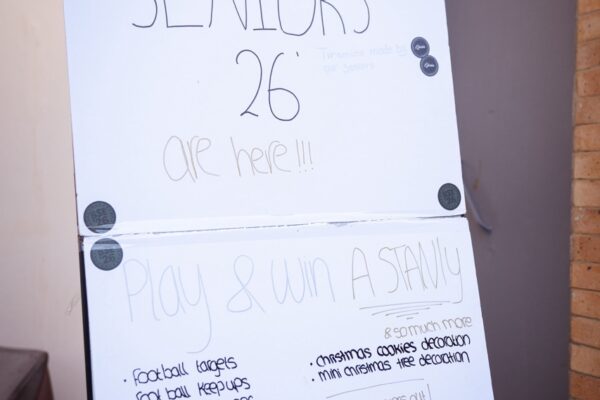 SENIORS
26'
Tiramisu made by
our seniors
are here!!!
Play & win A STANLY
& so much more
• Football targets
• christmas cookies decoration
Football keepups
• mini christmas tree decoration